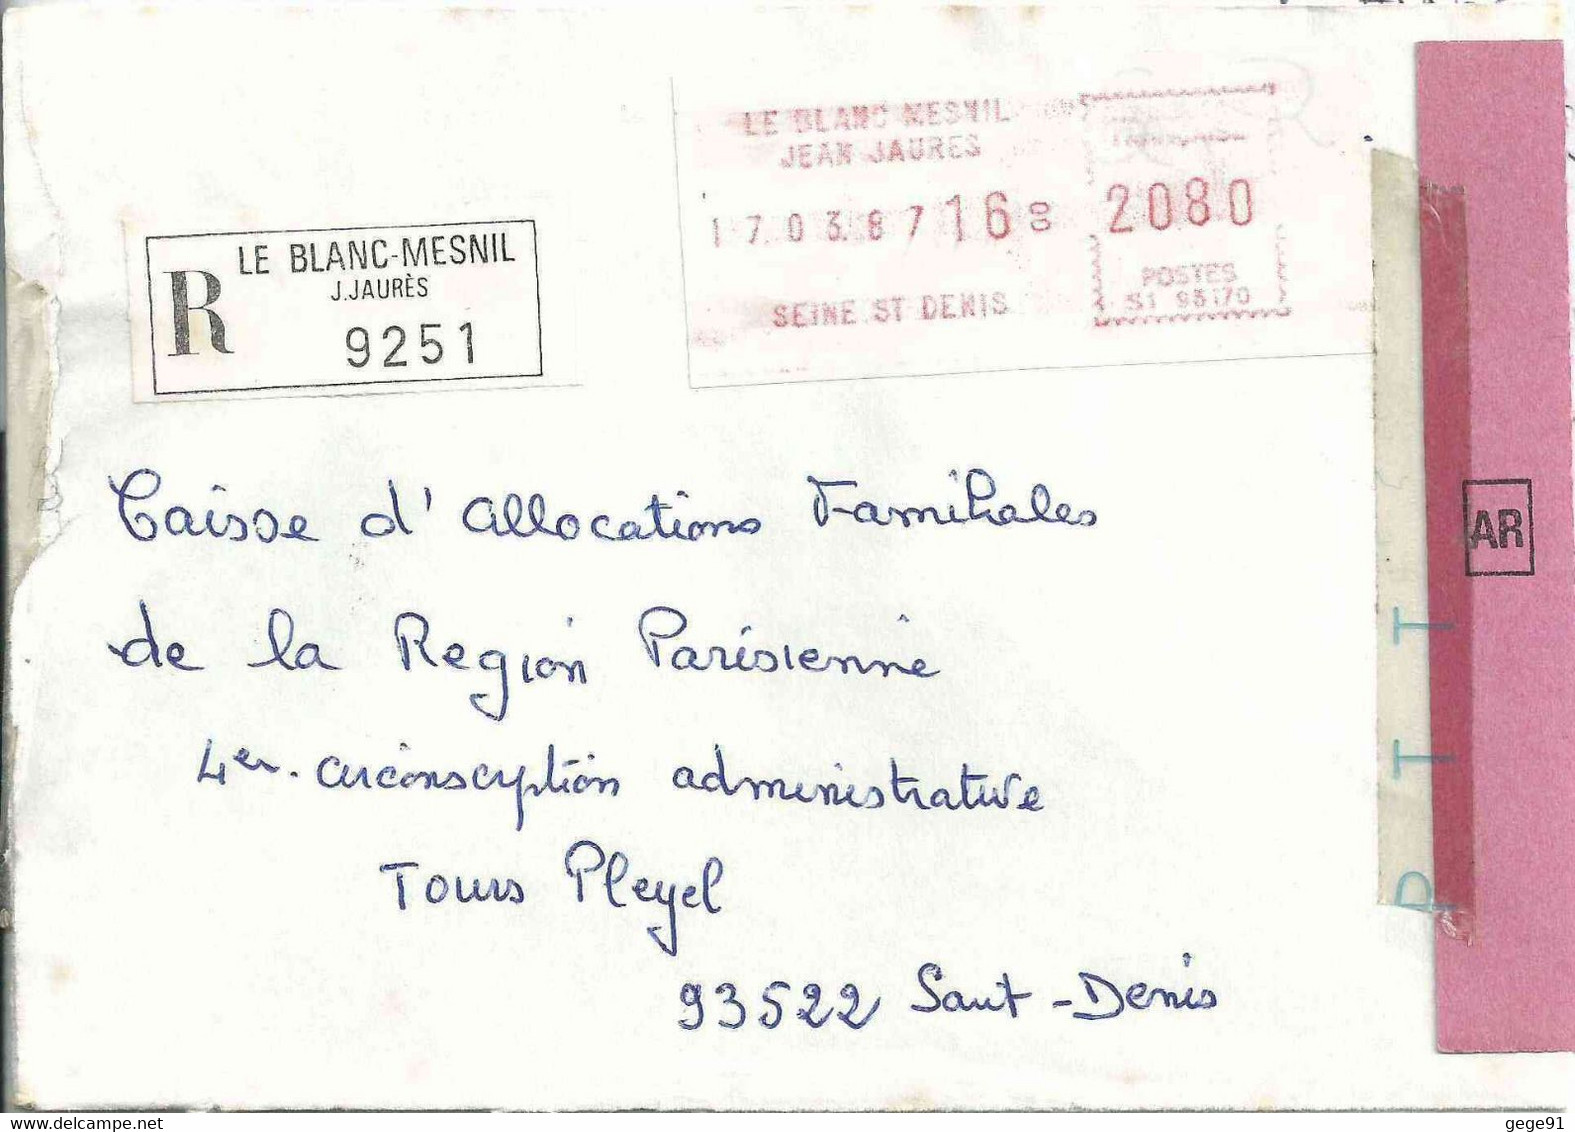 LE BLANC-MESNIL
J.JAURÈS
R
9251
LE BLANC MESNIL
JEAN JAURES
17.03.87 16 00
2080
POSTES
SEINE ST DENIS
S1 93170
Caisse d'Allocations Familiales
de la Region Parisienne
4er. circonscription administrative
Tours Pleyel
93522 Saint-Denis
AR
P T T
www.delcampe.net
gege91